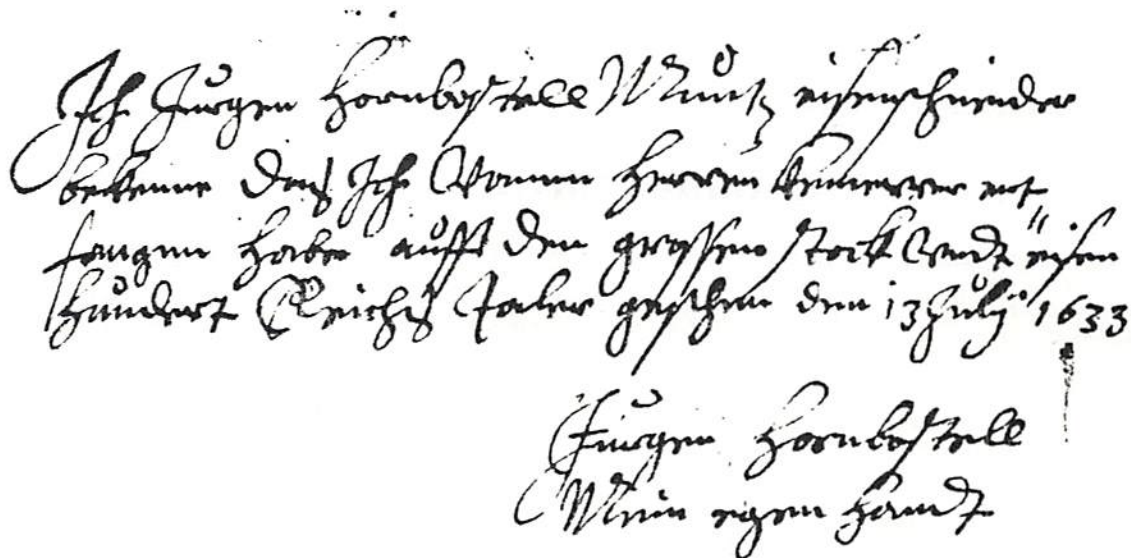 Ich Jurgen Hornbostell Muntz eisenschneider
bekenne das Ich Vonnn Herren Kemerrer ent
fangen habe auff den grossen stock Vndt eisen
hundert Reichs Taler geschen den 13 July 1633
Jurgen Hornbostell
Mein egen Handt